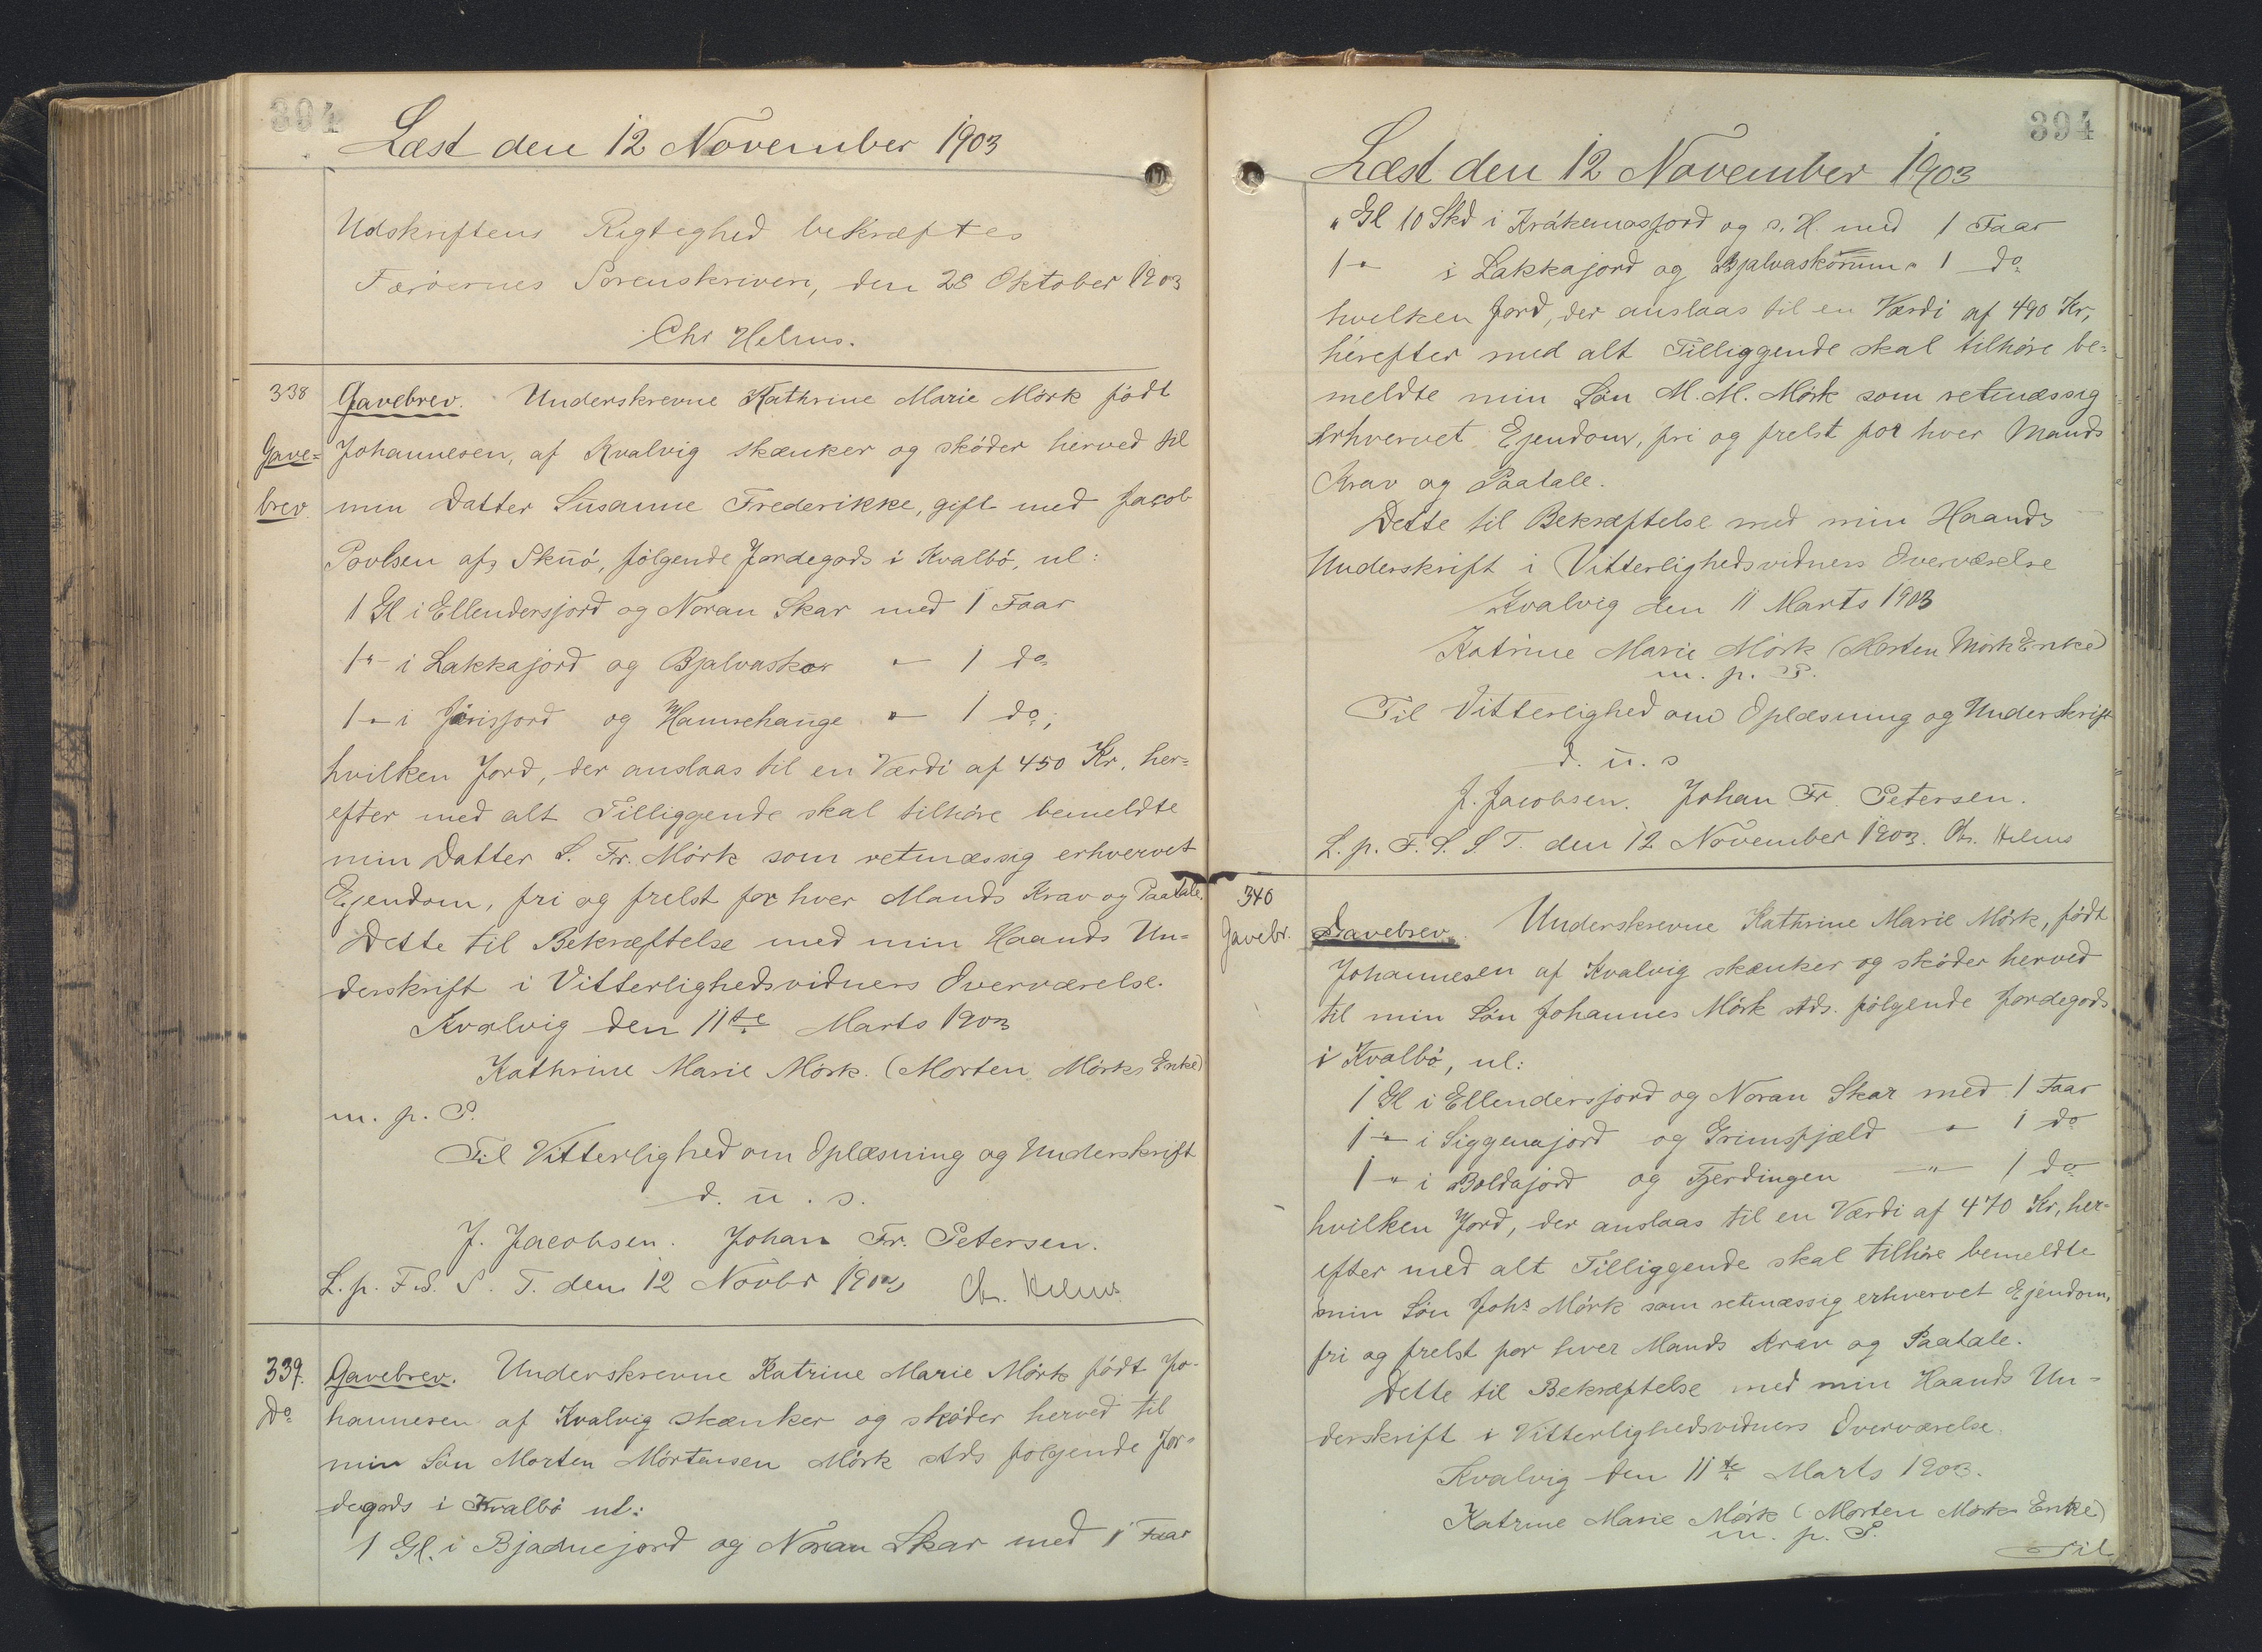 394
Læst den 12 November 1903
Udskriftens Rigtighed bekræftes
Færøernes Sorenskriveri, den 28 Oktober 1903
Chr Helms.
338
Gavebrev. Underskrevne Kathrine Marie Mörk født
Gave= Johannesen, af Kvalvig skænker og skøder herved til
brev. min Datter Susanne Frederikke, gift med Jacob
Povlsen af Skuø, følgende Jordegods i Kvalbø, nl:
1 Gl i Ellendersjord og Noran Skar med 1 Faar
1 " i Lakkajord og Bjalvaskor " 1 do
1 " i Jörisjord og Hamrehauge " 1 do;
hvilken Jord, der anslaas til en Værdi af 450 Kr. her=
efter med alt Tilliggende skal tilhøre bemeldte
min Datter S. Fr. Mörk som retmæssig erhvervet
Ejendom, fri og frelst for hver Mands Krav og Paatale.
Dette til Bekræftelse med min Haands Un=
derskrift i Vitterlighedsvidners Overværelse.
Kvalvig den 11te Marts 1903
Kathrine Marie Mörk. (Morten Mörks Enke)
m. p. P.
Til Vitterlighed om Oplæsning og Underskrift
d. u. s.
J. Jacobsen. Johan Fr. Petersen.
L. p. F. S. S. T. den 12 Novbr 1903 Chr. Helms
339. Gavebrev. Underskrevne Katrine Marie Mörk født Jo-
Do hannesen af Kvalvig skænker og skøder herved til
min Søn Morten Mörtensen Mörk stds følgende Jor=
degods i Kvalbø nl:
1 Gl. i Bjadnejord og Noran Skar med 1 Faar
394
Læst den 12 November 1903
" Gl 10 Skd i Krákemosjord og s. H. med 1 Faar
1 " i Lakkajord og Bjalvaskorum " 1 do
hvilken Jord, der anslaas til en Værdi af 490 Kr,
herefter med alt Tilliggende skal tilhøre be=
meldte min Søn M. M. Mörk som retmæssig
erhvervet Ejendom, fri og frelst for hver Mands
Krav og Paatale.
Dette til Bekræftelse med min Haands
Underskrift i Vitterlighedsvidners Overværelse
Kvalvig den 11 Marts 1903
Katrine Marie Mörk (Morten Mörk Enke)
m. p. P.
Til Vitterlighed om Oplæsning og Underskrift
d. u. s
J. Jacobsen. Johan Fr. Petersen.
L. p. F. S. S T. den 12 November 1903. Chr. Helms
340
Gavebr. Gavebrev. Underskrevne Kathrine Marie Mörk, født
Johannesen af Kvalvig skænker og skøder herved
til min Søn Johannes Mörk stds. følgende Jordegods
i Kvalbø, nl:
1 Gl i Ellendersjord og Noran Skar med 1 Faar
1 " i Siggenajord og Grimsfjæld " 1 do
1 " i Boldajord og Fjerdingen " 1 do
hvilken Jord, der anslaas til en Værdi af 470 Kr, her=
efter med alt Tilliggende skal tilhøre bemeldte
min Søn Johs Mörk som retmæssig erhvervet Ejendom,
fri og frelst for hver Mands Krav og Paatale.
Dette til Bekræftelse med min Haands Un=
derskrift i Vitterlighedsvidners Overværelse.
Kvalvig den 11te Marts 1903.
Katrine Marie Mörk (Morten Mörks Enke)
m. p. P.
Til